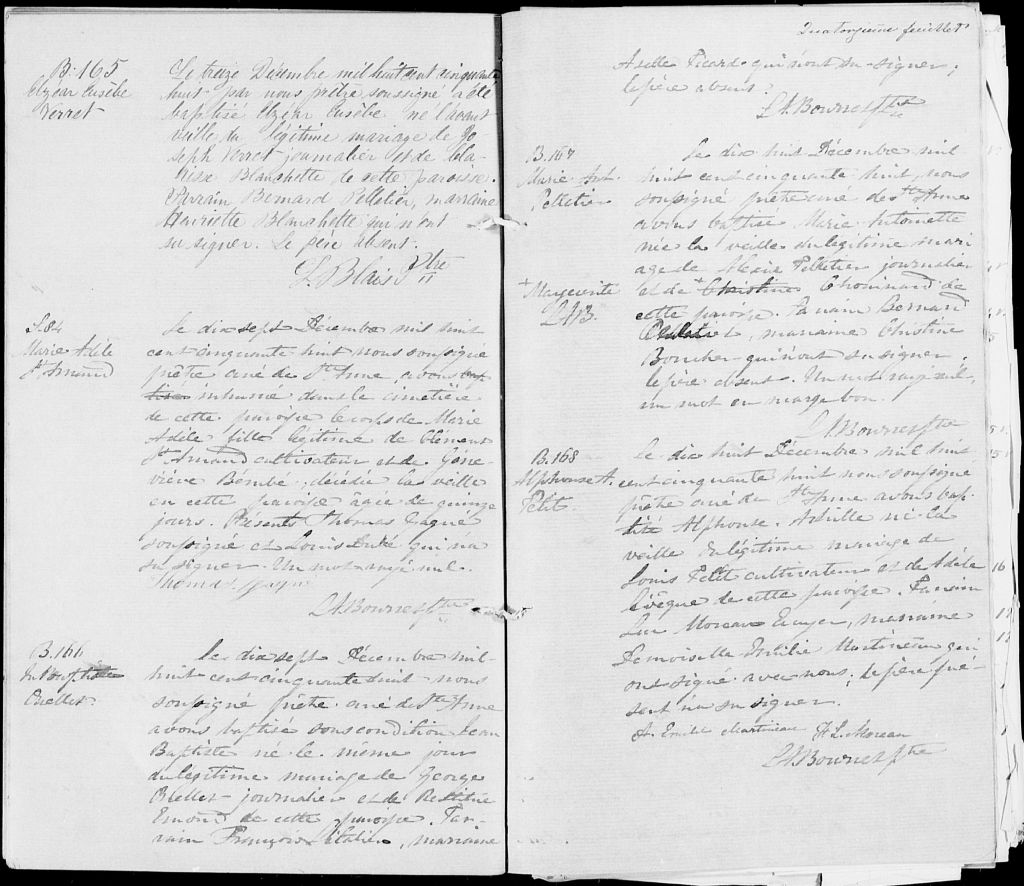 B. 165
Elzéar Eusèbe
Verret
Le treize Décembre mil huit cent cinquante
huit par nous prêtre soussigné a été
baptisé Elzéar Eusèbe né l'avant
veille du légitime mariage de Jo
seph Verret journalier et de Cla-
risse Blanchette de cette paroisse.
Parrain Bernard Pelletier, marraine
Henriette Blanchette qui n'ont
su signer. Le père absent.
L. Blais Ptre
S. 84
Marie Adèle
St. Amand
Le dix sept Décembre mil huit
cent cinquante huit nous soussigné
prêtre curé de Ste Anne, avons bap
tisé inhumé dans le cimetière
de cette paroisse le corps de Marie
Adèle fille légitime de Clément
St Amand cultivateur et de Géne-
viève Bérubé, décédée la veille
en cette paroisse âgée de quinze
jours. Présents Thomas Gagné
soussigné et Louis Dubé qui n'a
su signer. Un mot rayé nul.
Thomas gagne
L.A. Bourret Ptre
B. 166
Jn Baptiste
Ouellet
Le dix sept Décembre mil
huit cent cinquante huit nous
soussigné prêtre curé de Ste Anne
avons baptisé sous condition Jean
Baptiste né le même jour
du légitime mariage de George
Ouellet journalier et de Restitue
Emond de cette paroisse. Par-
rain François Létalien, marraine
Quatorzième feuillet
Adelle Picard qui n'ont su signer;
le père absent.
L.A. Bourret Ptre
B. 167
Marie Ant.
Pelletier
+ Marguerite
L.A.B.
Le dix huit Décembre mil
huit cent cinquante huit, nous
soussigné prêtre curé de Ste Anne
avons baptisé Marie Antoinette
née la veille du légitime mari
age de Alexis Pelletier journalier
et de + Christine Chouinard de
cette paroisse. Parrain Bernard
Pelletier, marraine Christine
Boucher qui n'ont su signer.
le père absent. Un mot rayé nul,
un mot en marge bon.
L.A. Bourret Ptre
B. 168
Alphonse A.
Petit
Le dix huit Décembre mil huit
cent cinquante huit nous soussigné
prêtre curé de Ste Anne avons bap
tisé Alphonse Achille né la
veille du légitime mariage de
Louis Petit cultivateur et de Adèle
Lévêque de cette paroisse. Parrain
Luc Moreau Ecuyer, marraine
Demoiselle Emilie Martineau qui
ont signé avec nous; le père pré
sent n'a su signer.
Emilie Martineau H. L. Moreau
L.A. Bourret Ptre